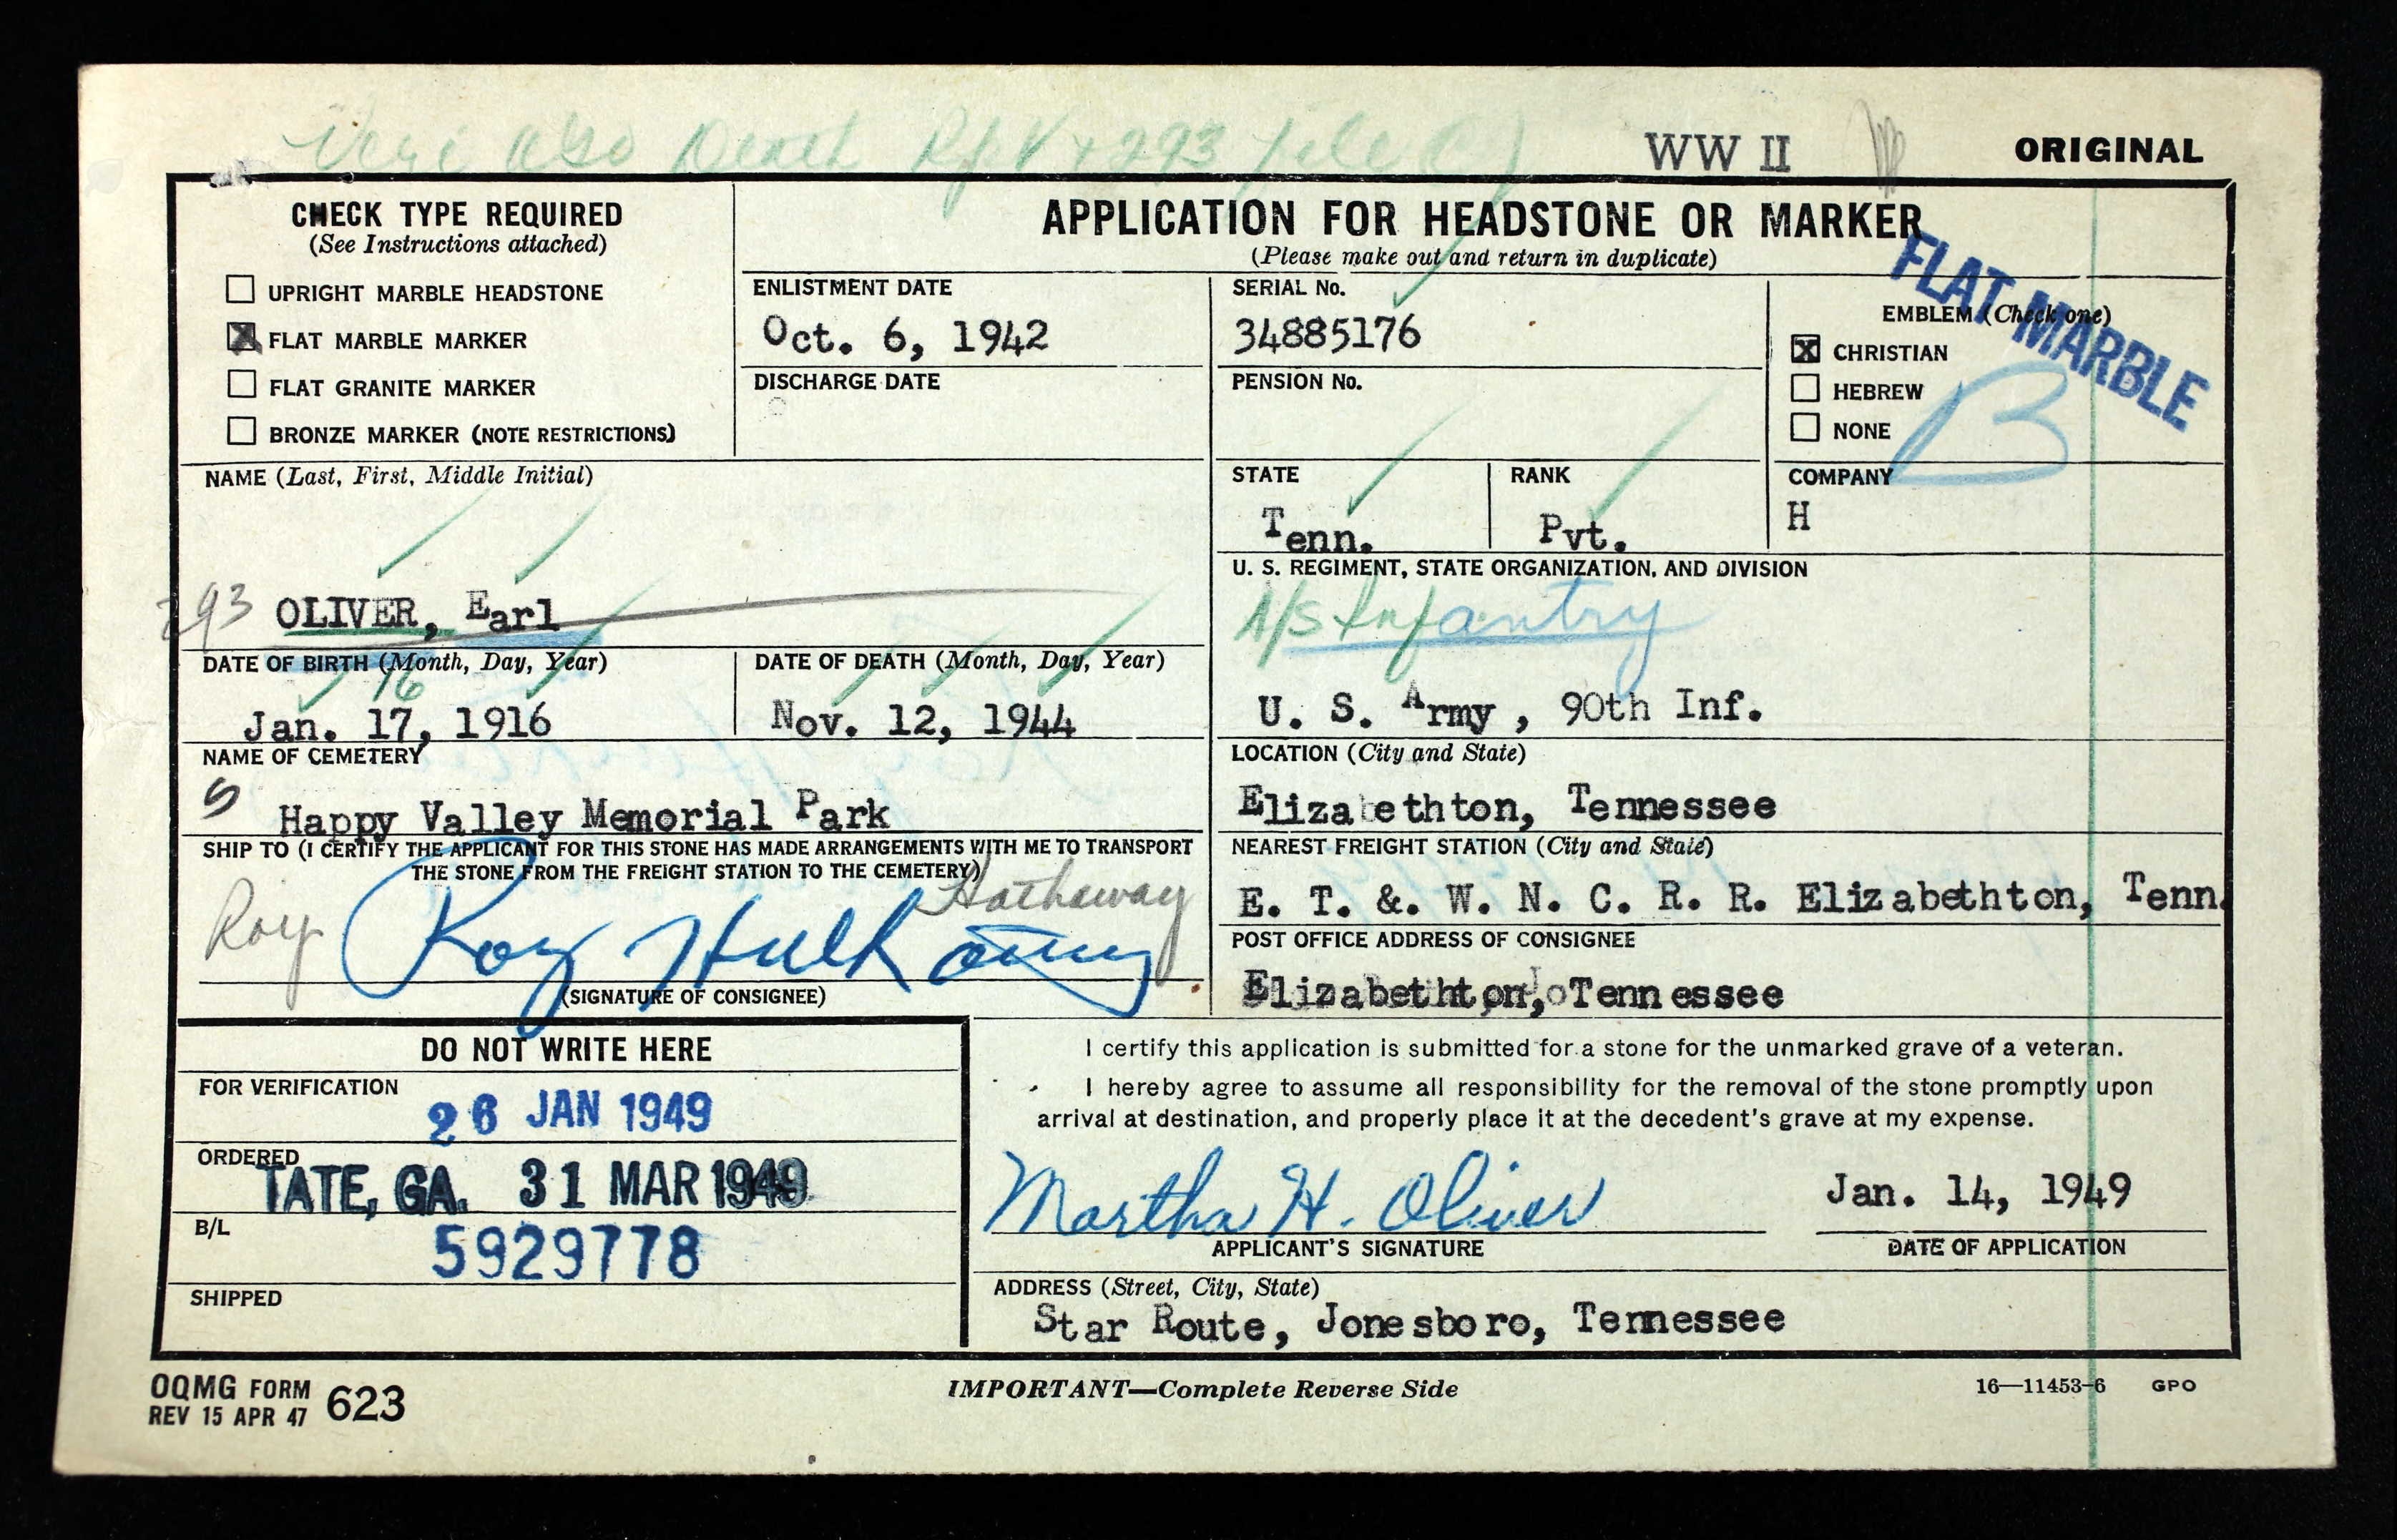 WW II
ORIGINAL
CHECK TYPE REQUIRED
(See Instructions attached)
UPRIGHT MARBLE HEADSTONE
X FLAT MARBLE MARKER
FLAT GRANITE MARKER
BRONZE MARKER (NOTE RESTRICTIONS)
APPLICATION FOR HEADSTONE OR MARKER
(Please make out and return in duplicate)
ENLISTMENT DATE
Oct. 6, 1942
DISCHARGE DATE
SERIAL No.
34885176
PENSION No.
FLAT MARBLE
EMBLEM (Check one)
X CHRISTIAN
HEBREW
NONE
B
NAME (Last, First, Middle Initial)
293 OLIVER, Earl
STATE
Tenn.
RANK
Pvt.
COMPANY
H
U. S. REGIMENT, STATE ORGANIZATION, AND DIVISION
Infantry
U. S. Army , 90th Inf.
DATE OF BIRTH (Month, Day, Year)
16
Jan. 17, 1916
DATE OF DEATH (Month, Day, Year)
Nov. 12, 1944
NAME OF CEMETERY
Happy Valley Memorial Park
LOCATION (City and State)
Elizabethton, Tennessee
SHIP TO (I CERTIFY THE APPLICANT FOR THIS STONE HAS MADE ARRANGEMENTS WITH ME TO TRANSPORT
THE STONE FROM THE FREIGHT STATION TO THE CEMETERY)
Roy Hathaway
Roy Hathaway
(SIGNATURE OF CONSIGNEE)
NEAREST FREIGHT STATION (City and State)
E. T. &. W. N. C. R. R. Elizabethton, Tenn.
POST OFFICE ADDRESS OF CONSIGNEE
Elizabethton, Tennessee
DO NOT WRITE HERE
FOR VERIFICATION
26 JAN 1949
ORDERED
TATE, GA. 31 MAR 1949
B/L
5929778
SHIPPED
I certify this application is submitted for a stone for the unmarked grave of a veteran.
I hereby agree to assume all responsibility for the removal of the stone promptly upon
arrival at destination, and properly place it at the decedent's grave at my expense.
Martha H. Oliver
APPLICANT'S SIGNATURE
Jan. 14, 1949
DATE OF APPLICATION
ADDRESS (Street, City, State)
Star Route, Jonesboro, Tennessee
OQMG FORM 623
REV 15 APR 47
IMPORTANT—Complete Reverse Side
16—11453-6 GPO